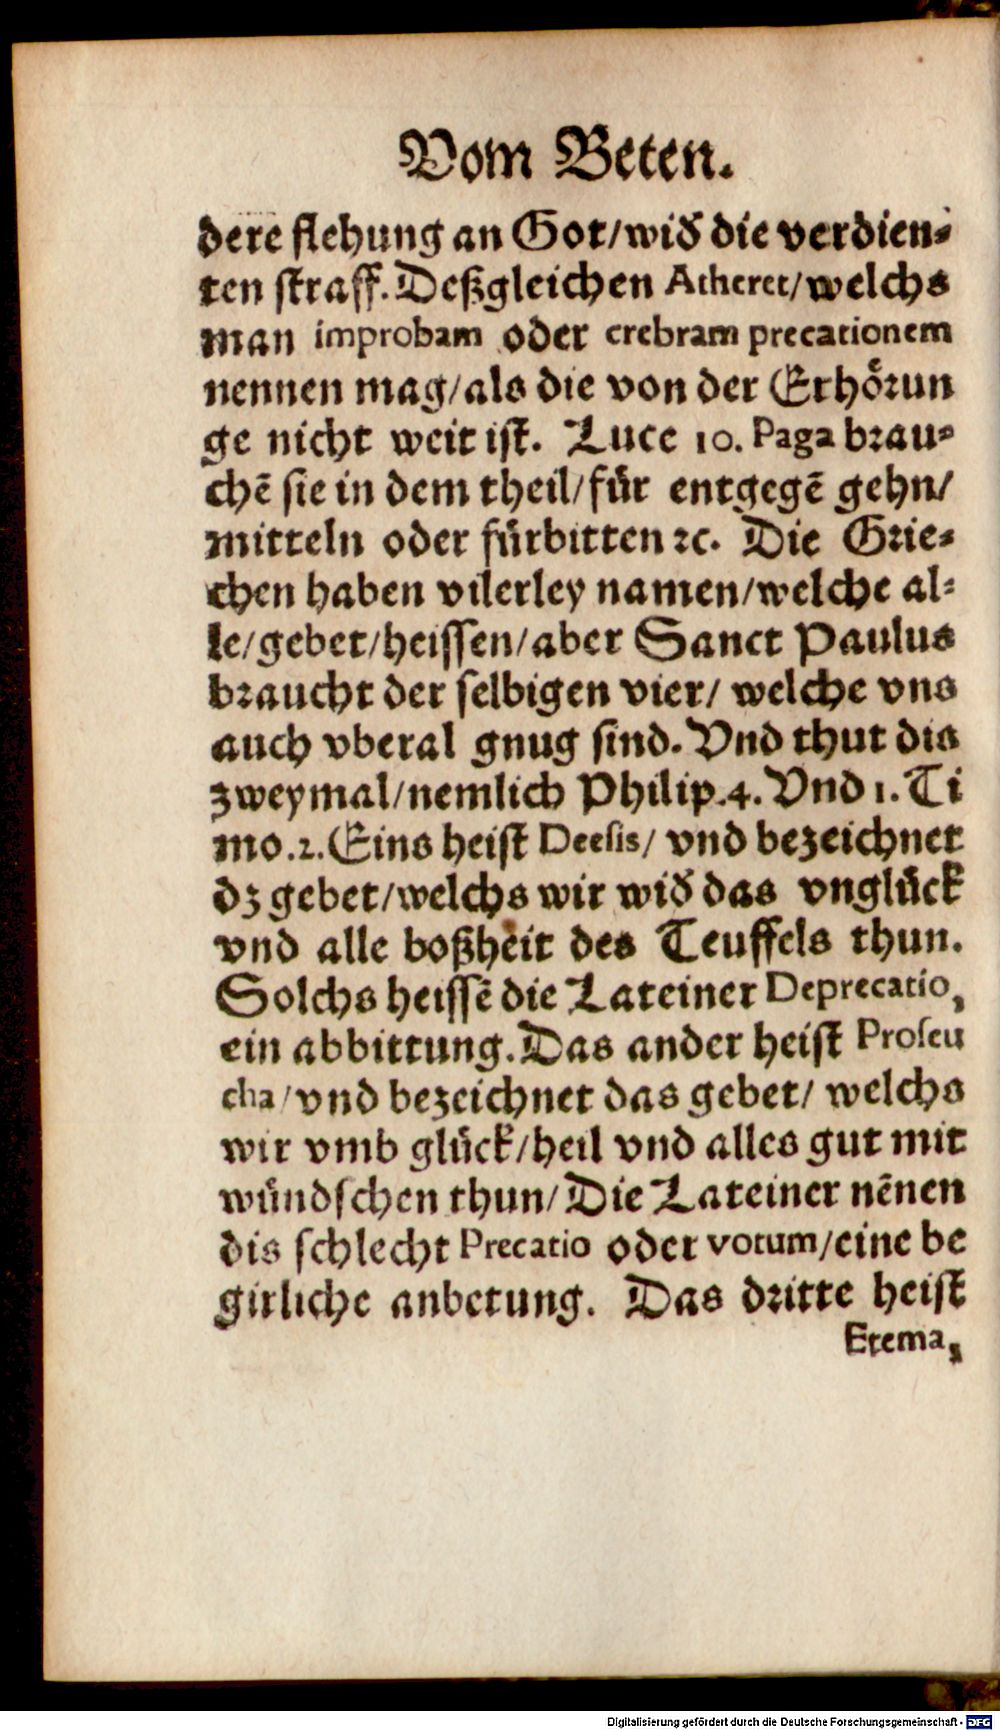 Vom Beten.
dere flehung an Got/wid̕ die verdien-
ten straff. Deßgleichen Atheret/welchs
man improbam oder crebram precationem
nennen mag/als die von der Erhoͤrun
ge nicht weit ist. Luce 10. Paga brau-
chē sie in dem theil/fuͤr entgegē gehn/
mitteln oder fuͤrbitten ꝛc. Die Grie-
chen haben vilerley namen/welche al-
le/gebet/heissen/aber Sanct Paulus
braucht der selbigen vier/ welche vns
auch vberal gnug sind. Vnd thut dis
zweymal/nemlich Philip.4. Vnd 1. Ti
mo.2. Eins heist Deesis/ vnd bezeichnet
dz gebet/welchs wir wid̕ das vngluͤck
vnd alle boßheit des Teuffels thun.
Solchs heissē die Lateiner Deprecatio,
ein abbittung. Das ander heist Proseu
cha/vnd bezeichnet das gebet/ welchs
wir vmb gluͤck/heil vnd alles gut mit
wuͤndschen thun/Die Lateiner nēnen
dis schlecht Precatio oder votum/eine be
girliche anbetung. Das dritte heist
Etema,
Digitalisierung gefördert durch die Deutsche Forschungsgemeinschaft - DFG